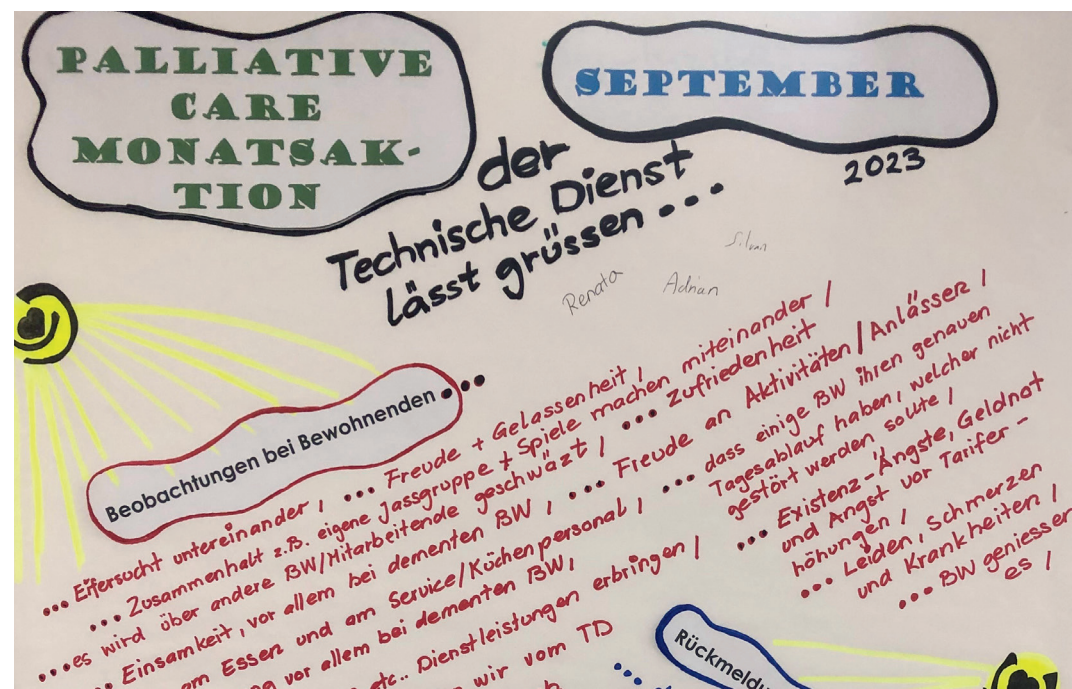 PALLIATIVE
CARE
MONATSAK-
TION
SEPTEMBER
2023
der
Technische Dienst
lässt grüssen...
Silvan
Renata
Adrian
Beobachtungen bei Bewohnenden...
... Eifersucht untereinander / ... Freude + Gelassenheit /
... Zusammenhalt z.B. eigene Jassgruppe + Spiele machen miteinander /
... es wird über andere BW/Mitarbeitende geschwäzt / ... Zufriedenheit
... Einsamkeit, vor allem bei dementen BW / ... Freude an Aktivitäten / Anlässen /
am Essen und am Service/Küchenpersonal / ... dass einige BW ihren genauen
Tagesablauf haben, welcher nicht
gestört werden sollte /
vor allem bei dementen BW /
etc.. Dienstleistungen erbringen /
wir vom TD
... Existenz-Ängste, Geldnot
und Angst vor Tarifer-
höhungen /
... Leiden, Schmerzen
und Krankheiten /
... BW geniessen
es /